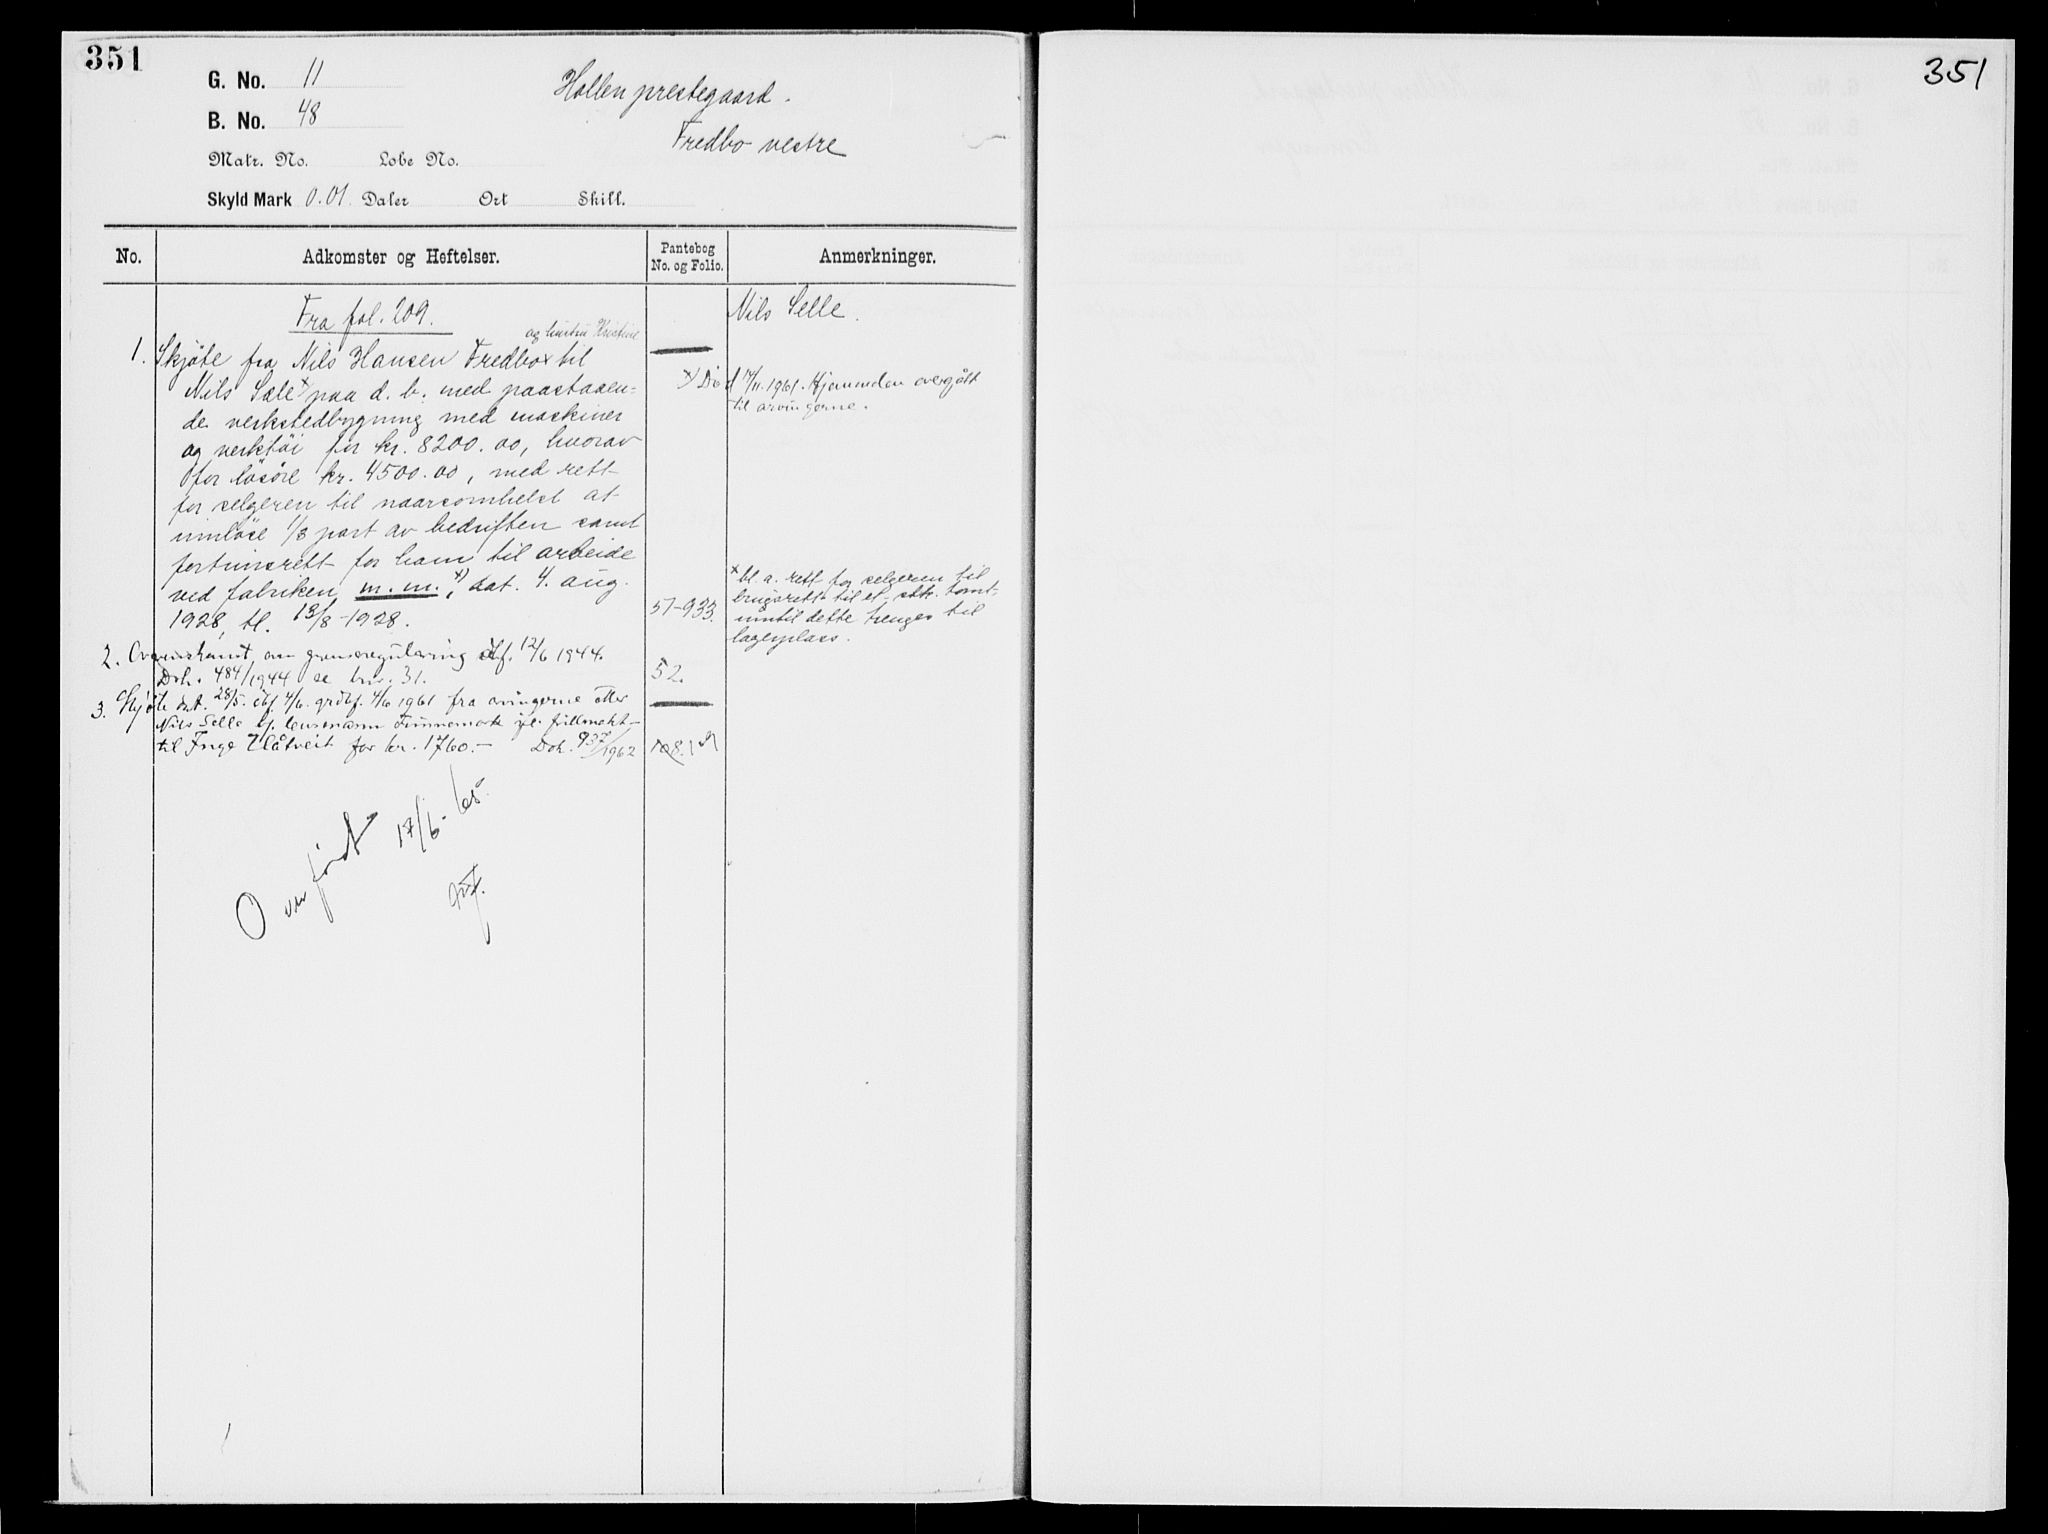 351
351
G. No. 11
Hollen prestegaard.
B. No. 48
Fredbo vestre
Matr. No. Lobe No.
Skyld Mark 0.01 Daler Ort Skill.
No. Adkomster og Heftelser. Pantebog No. og Folio. Anmerkninger.
Fra fol. 209.
Nils Selle.
og hustru Kristine
1. Skjøte fra Nils Hansen Fredbo x til
Nils Sæle x) paa d. b. med paastaaen-
de verkstedbygning med maskiner
og verktøi for kr. 8200.00, hvorav
for løsøre kr. 4500.00, med rett
for selgeren til naarsomhelst at
innløse 1/3 part av bedriften samt
fortrinsrett for ham til arbeide
ved fabriken m. m. x), dat. 4. aug.
1928, tl. 13/8-1928.
51-933.
x) Død 14/11. 1961. Hjemmelen overgått
til arvingerne.
x bl. a. rett for selgeren til
bruksrett til et stk. tomt,
inntil dette trenges til
lagerplass.
2. Overenskomst om grenseregulering dbf. 12/6 1944.
Dok. 484/1944 se bnr. 31.
52.
3. Skjøte dat. 28/5. dbf. 4/6. grdbf. 4/6 1961 fra arvingerne etter
Nils Selle v/ lensmann Finnemark ifl. fullmakt
til Inge Flåtveit for kr. 1760.- Dok. 937/1962
Overført 17/6-65.